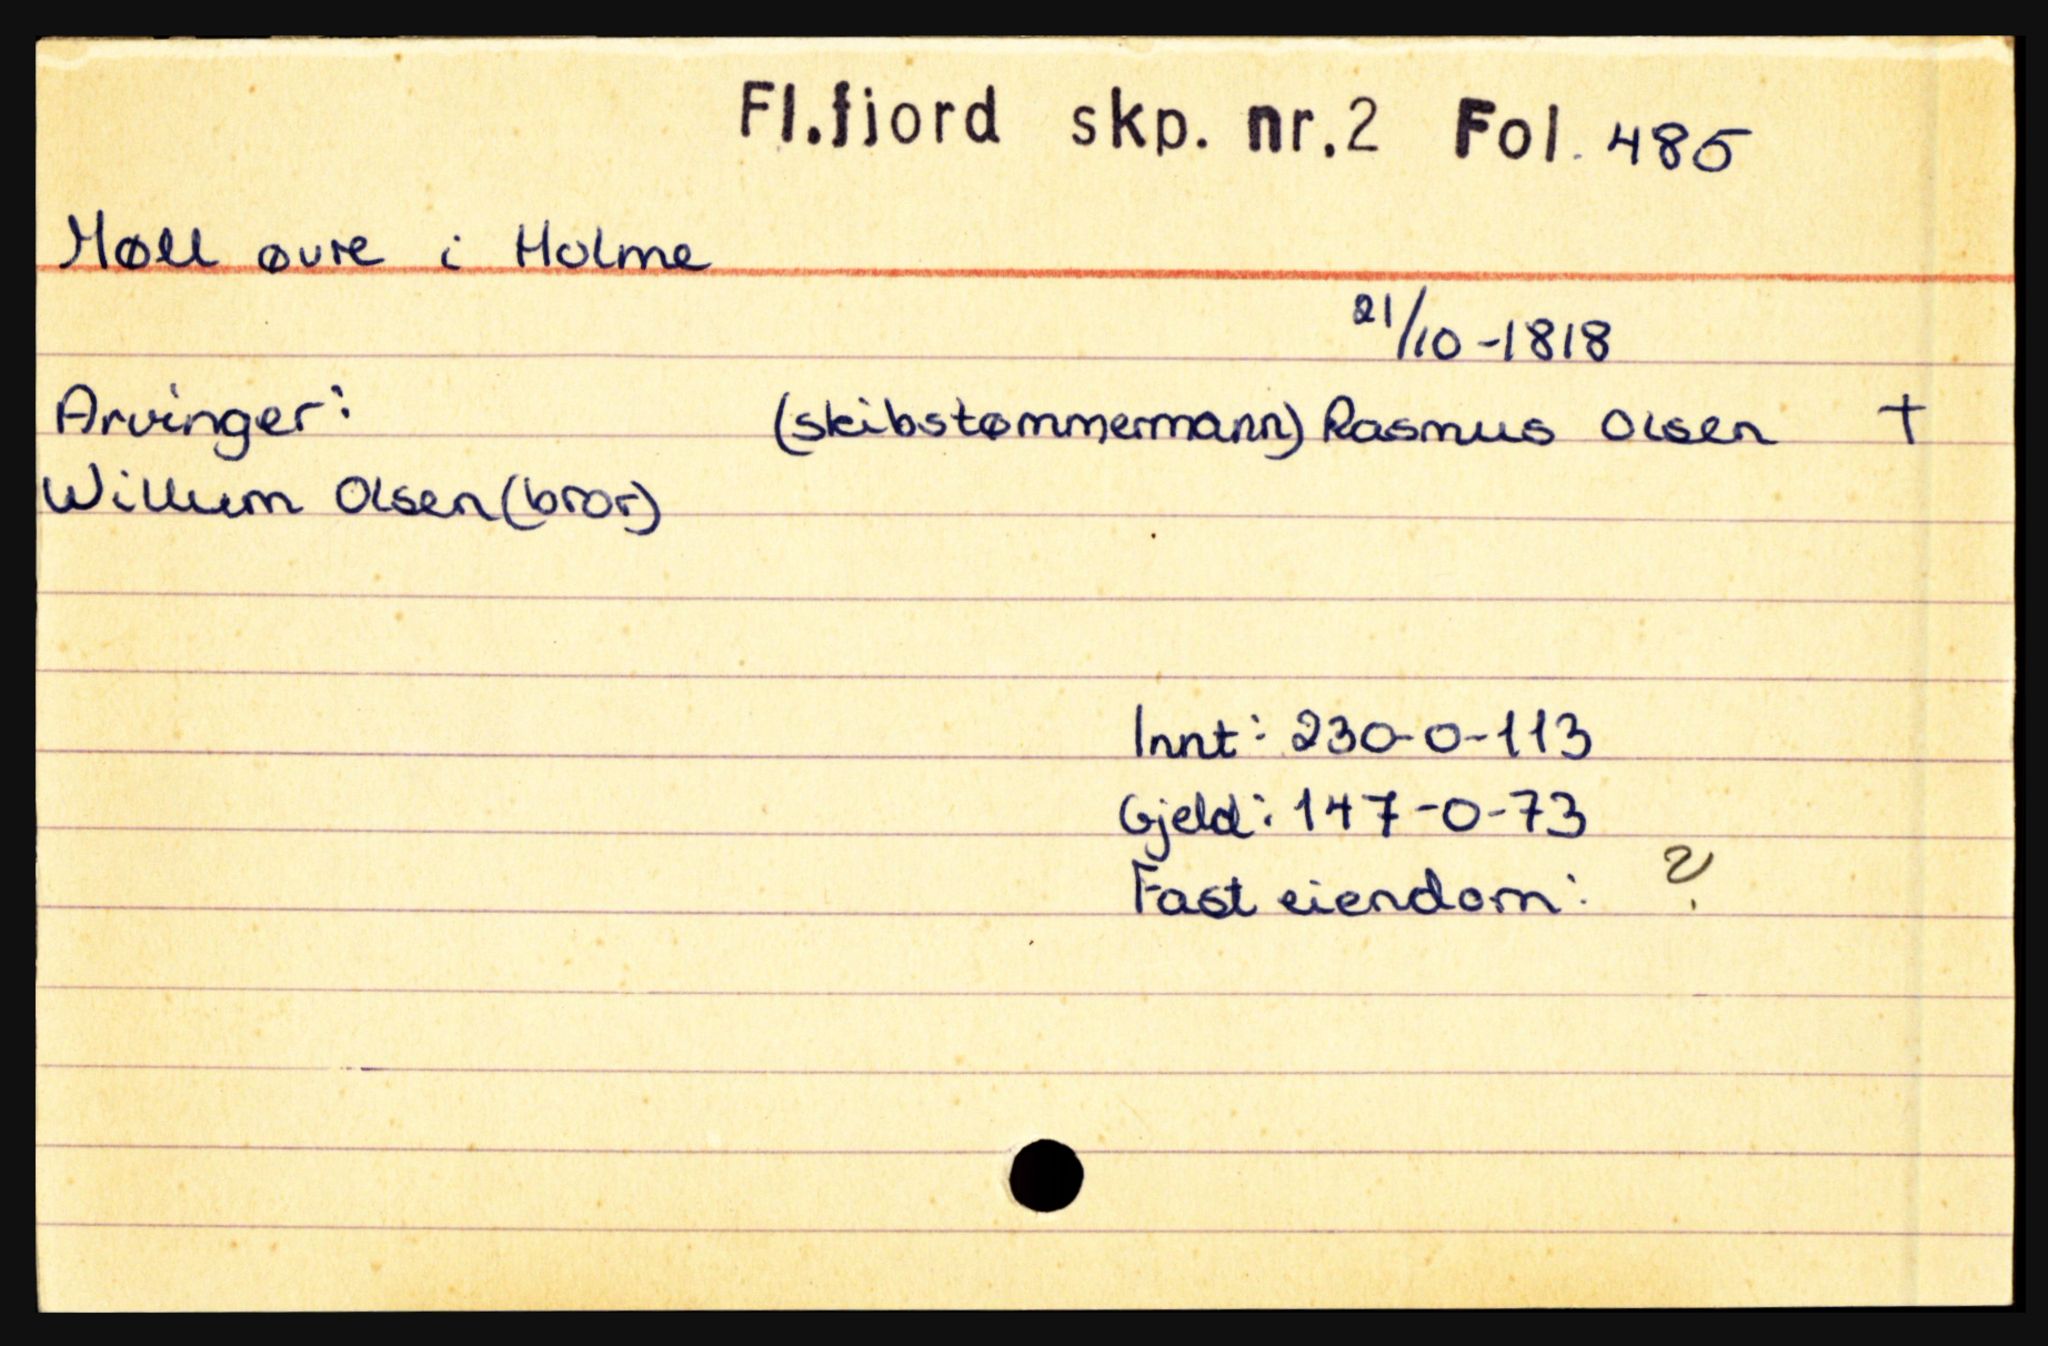 Fl.fjord skp. nr.2 Fol. 485
Møll øvre i Holme
21/10-1818
Arvinger: (skibstømmermann) Rasmus Olsen †
Willum Olsen (bror)
Innt: 230-0-113
Gjeld: 147-0-73
Fast eiendom: ?